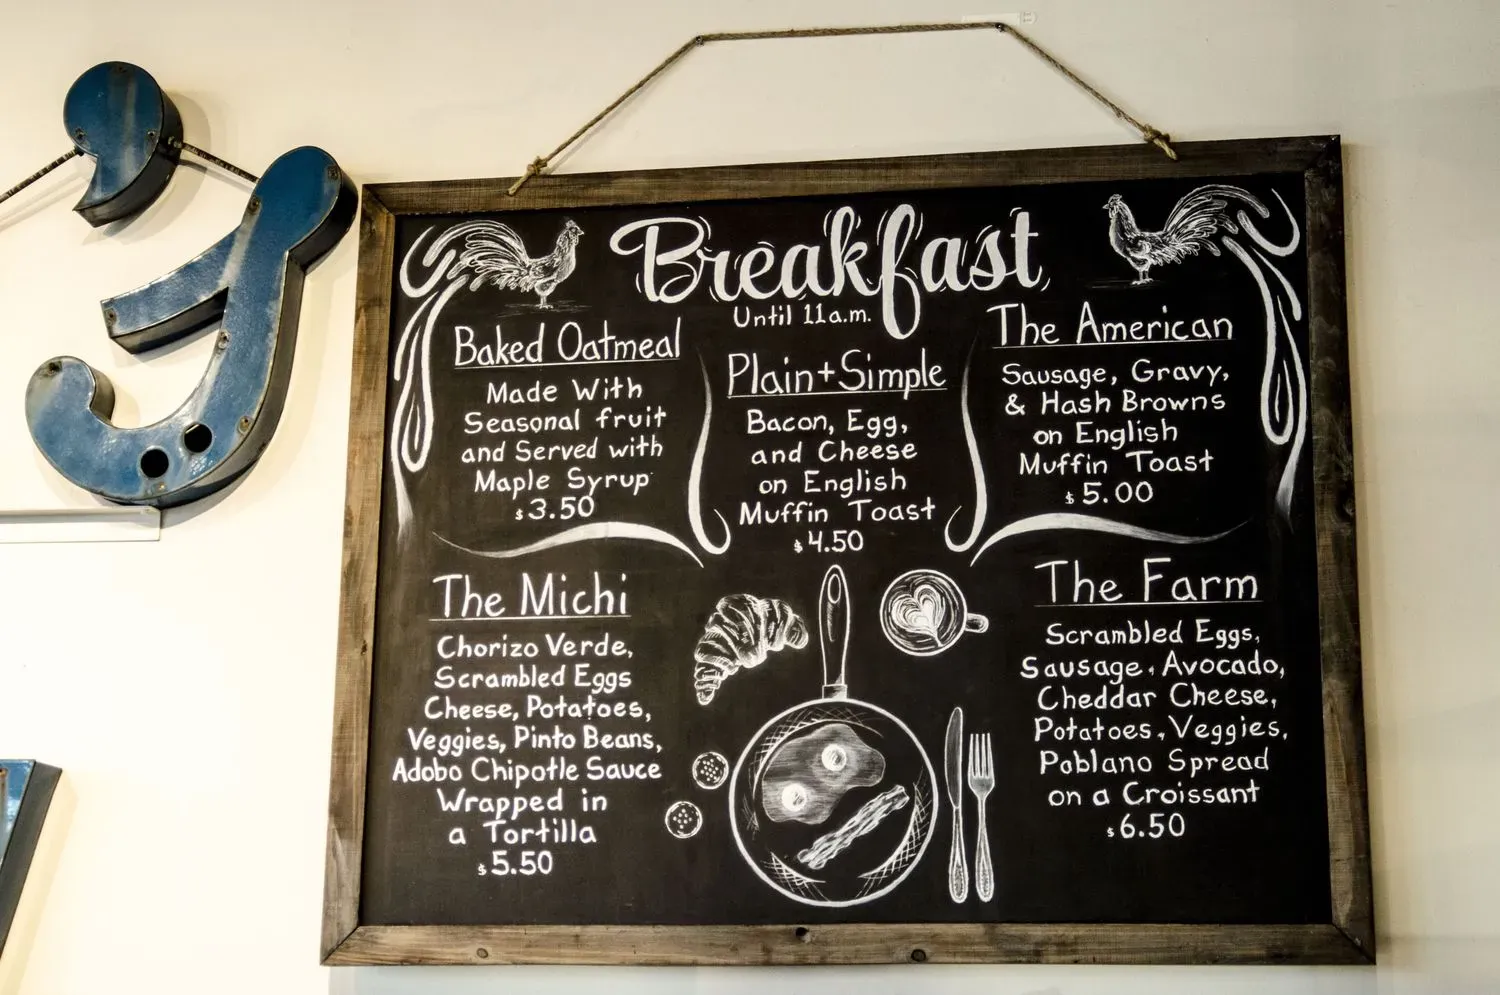 Breakfast
Until 11a.m.
Baked Oatmeal
Made With
Seasonal fruit
and Served with
Maple Syrup
$3.50
Plain+Simple
Bacon, Egg,
and Cheese
on English
Muffin Toast
$4.50
The American
Sausage, Gravy,
& Hash Browns
on English
Muffin Toast
$5.00
The Michi
Chorizo Verde,
Scrambled Eggs
Cheese, Potatoes,
Veggies, Pinto Beans,
Adobo Chipotle Sauce
Wrapped in
a Tortilla
$5.50
The Farm
Scrambled Eggs,
Sausage, Avocado,
Cheddar Cheese,
Potatoes, Veggies,
Poblano Spread
on a Croissant
$6.50